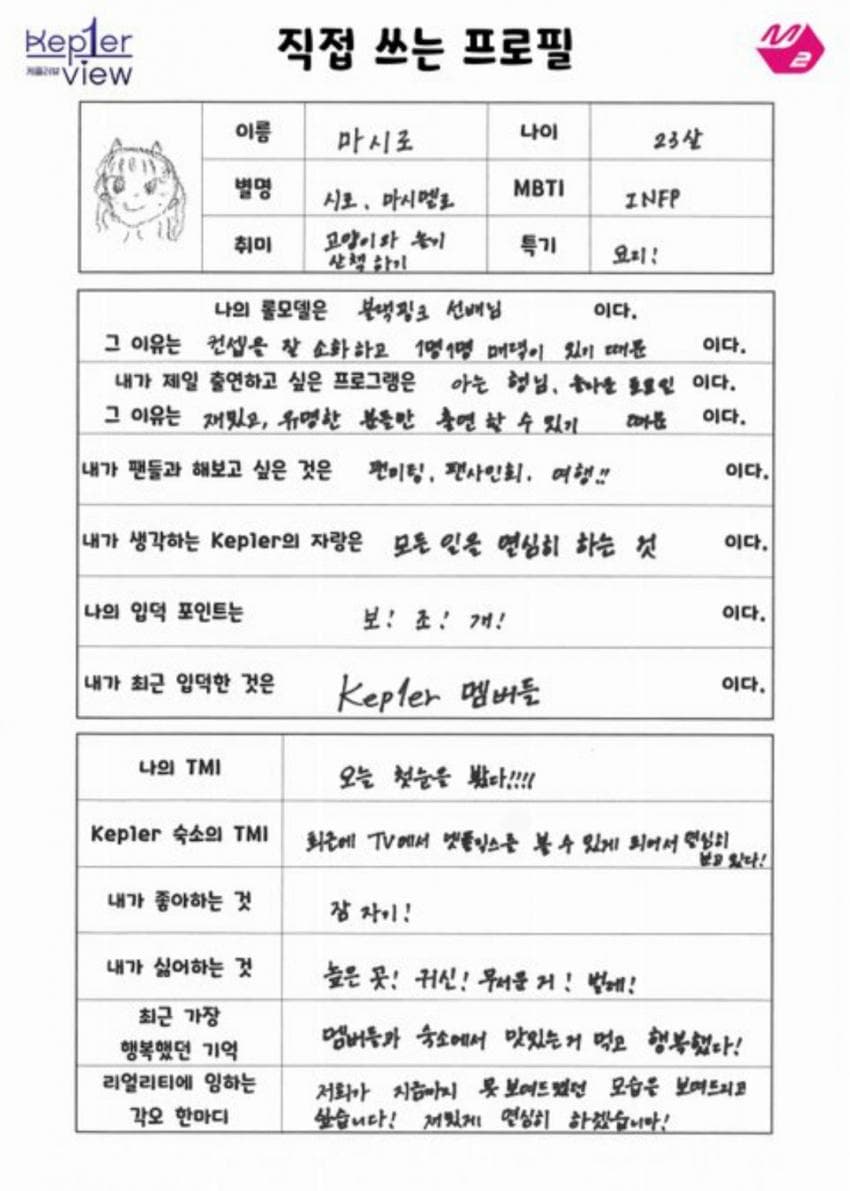 Kep1er
케플러뷰 view
직접 쓰는 프로필
M2
이름 마시로 나이 23살
별명 시로, 마시멜로 MBTI INFP
취미 고양이와 놀기 특기 요리!
산책 하기
나의 롤모델은 블랙핑크 선배님 이다.
그 이유는 컨셉을 잘 소화하고 1명1명 매력이 있기 때문 이다.
내가 제일 출연하고 싶은 프로그램은 아는 형님, 놀라운 토요일 이다.
그 이유는 재밌고, 유명한 분들만 출연 할 수 있기 때문 이다.
내가 팬들과 해보고 싶은 것은 팬미팅, 팬사인회, 여행!! 이다.
내가 생각하는 Kep1er의 자랑은 모든 일을 열심히 하는 것 이다.
나의 입덕 포인트는 보! 조! 개! 이다.
내가 최근 입덕한 것은 Kep1er 멤버들 이다.
나의 TMI 오늘 첫눈을 봤다!!!!
Kep1er 숙소의 TMI 최근에 TV에서 넷플릭스를 볼 수 있게 되어서 열심히
보고 있다!
내가 좋아하는 것 잠 자기!
내가 싫어하는 것 높은 곳! 귀신! 무서운 거! 벌레!
최근 가장
행복했던 기억 멤버들과 숙소에서 맛있는거 먹고 행복했다!
리얼리티에 임하는 저희가 지금까지 못 보여드렸던 모습을 보여드리고
각오 한마디 싶습니다! 재밌게 열심히 하겠습니다!